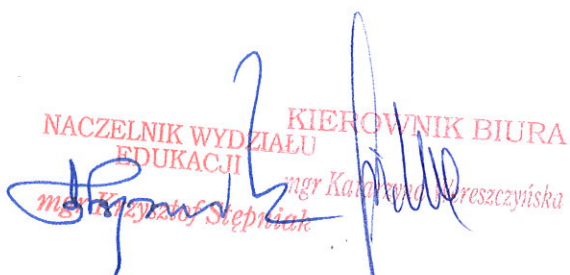 NACZELNIK WYDZIAŁU
EDUKACJI
mgr Krzysztof Stępniak
KIEROWNIK BIURA
mgr Katarzyna